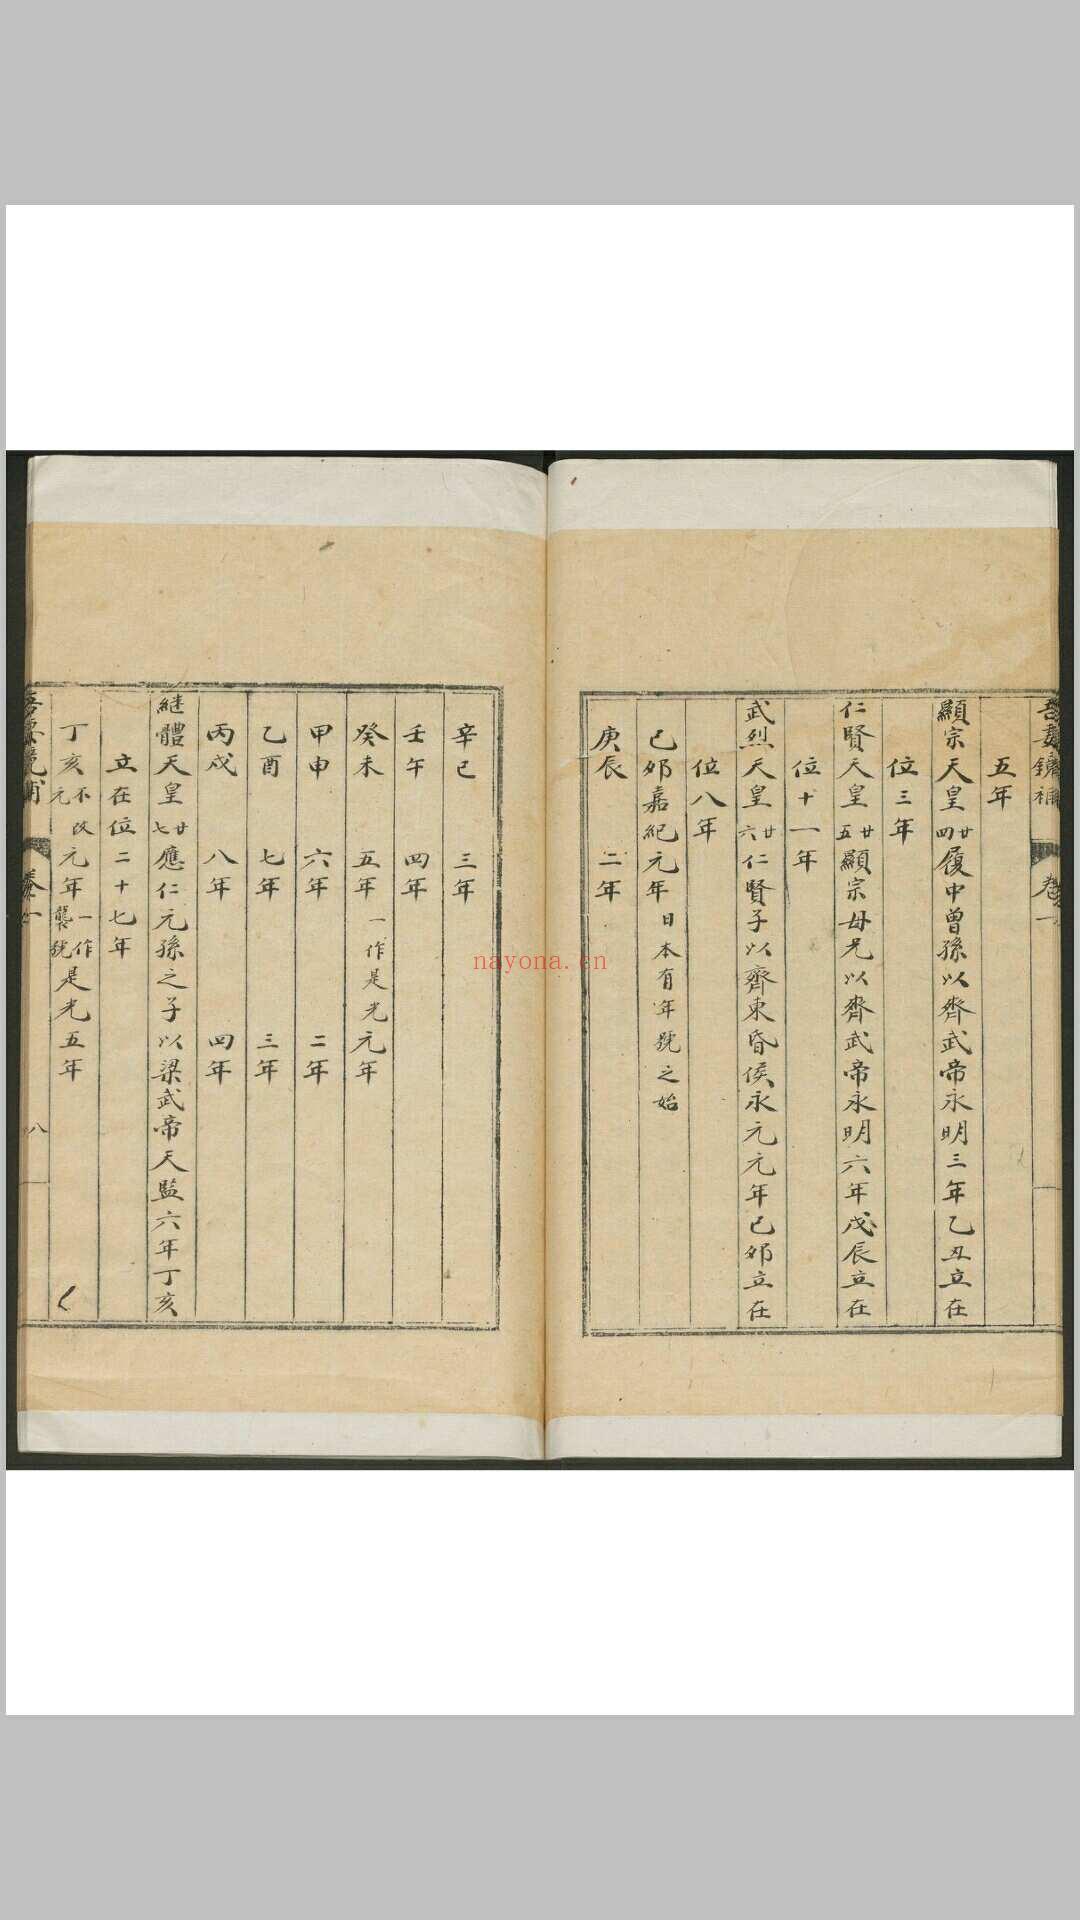 吾妻鏡補 卷一
五年
顯宗天皇廿四履中曾孫以齊武帝永明三年乙丑立在
位三年
仁賢天皇廿五顯宗母兄以齊武帝永明六年戊辰立在
位十一年
武烈天皇廿六仁賢子以齊東昏侯永元元年己夘立在
位八年
己夘嘉紀元年日本有年號之始
庚辰 二年
辛巳 三年
壬午 四年
癸未 五年一作是光元年
甲申 六年 二年
乙酉 七年 三年
丙戌 八年 四年
継體天皇廿七應仁元孫之子以梁武帝天監六年丁亥
立在位二十七年
丁亥不改元元年一作襲號是光五年
吾妻鏡補 卷一 八
nayona.cn